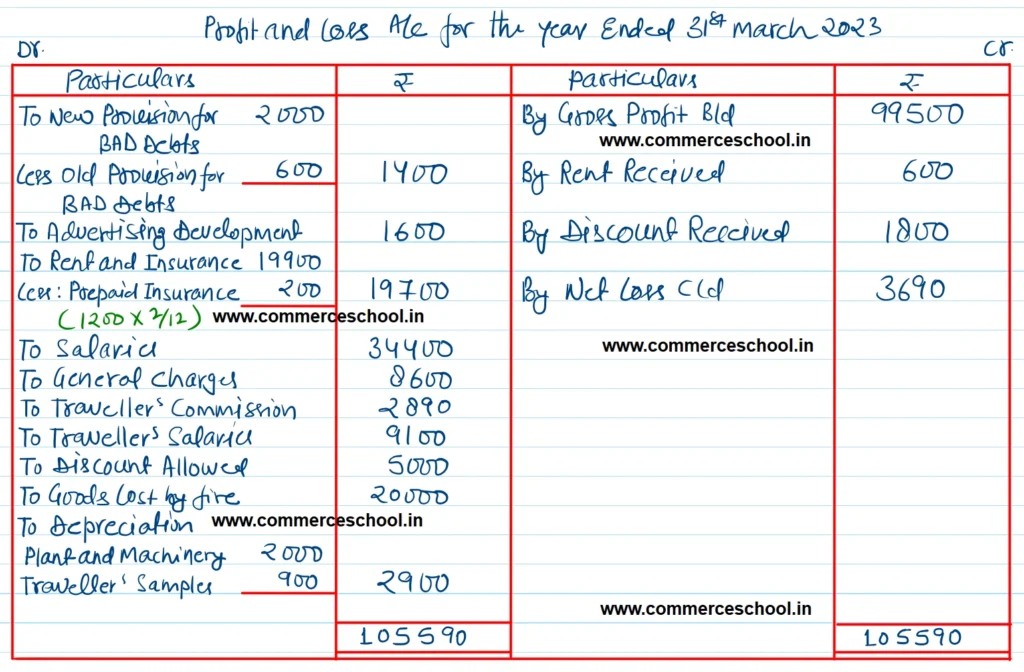 Profit and Loss A/c for the year Ended 31st march 2023
Dr. Cr.
Particulars ₹ Particulars ₹
To New Provision for 2000 By Gross Profit B/d 99500
BAD Debts www.commerceschool.in
Less Old Provision for 600 1400 By Rent Received 600
BAD Debts
To Advertising Development 1600 By Discount Received 1800
To Rent and Insurance 19900
Less: Prepaid Insurance 200 19700 By Net Loss C/d 3690
(1200 x 2/12) www.commerceschool.in
To Salaries 34400 www.commerceschool.in
To General Charges 8600
To Traveller's Commission 2890
To Traveller's Salaries 9100
To Discount Allowed 5000
To Goods Lost by fire 20000
To Depreciation www.commerceschool.in
Plant and Machinery 2000
Traveller's Samples 900 2900
www.commerceschool.in
105590 105590